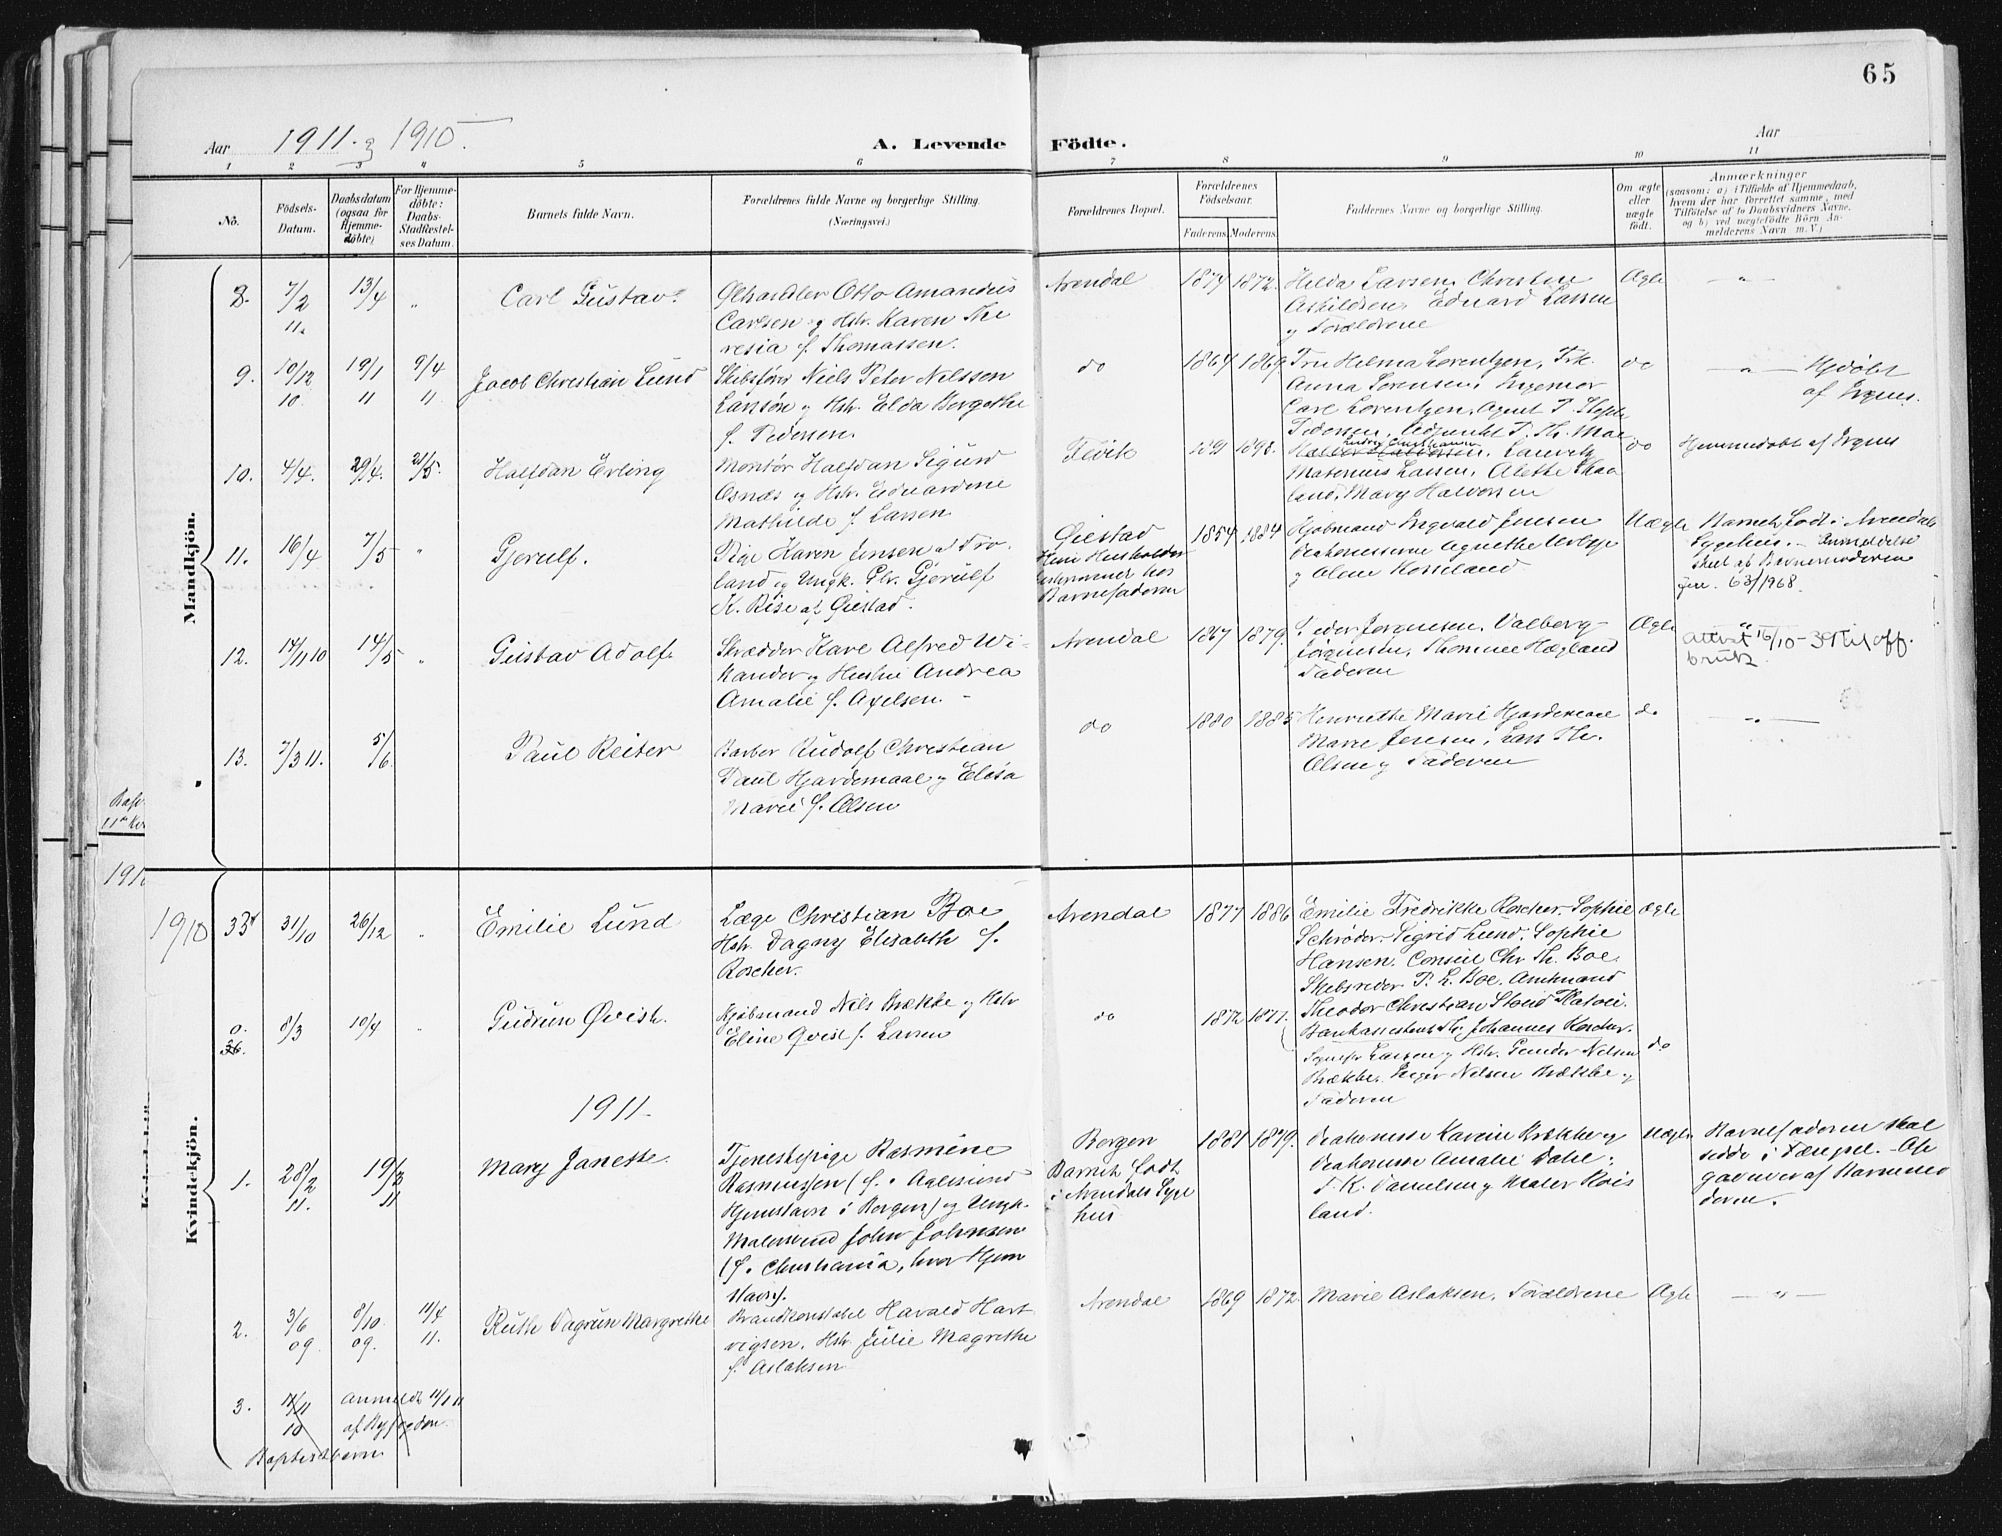 65
Aar 1911 og 1910.
A. Levende Födte.
Aar
1 2 3 4 5 6 7 8 9 10 11
No.
Födsels-Datum.
Daabsdatum (ogsaa for Hjemme-döbte)
For Hjemme-döbte: Daabs-Stadfæstel-ses Datum.
Barnets fulde Navn.
Forældrenes fulde Navne og borgerlige Stilling.
(Næringsvei.)
Forældrenes Bopæl.
Forældrenes Födselsaar.
Faderens. Moderens.
Faddernes Navne og borgerlige Stilling.
Om ægte eller uægte födt.
Anmærkninger
(saasom: a) i Tilfælde af Hjemmedaab,
hvem der har forrettet samme, med
Tilföielse af to Daabsvidners Navne,
og b) ved uægtefödte Börn An-
melderens Navn m. V.)
Mandkjön.
8. 7/2 11. 13/4 " Carl Gustav
Ølhandler Otto Amandus
Carlsen og Hstr. Karen The
resia f. Thomassen.
Arendal 1874 1872.
Hilda Larsen, Christine
Askildsen, Eduard Larsen
og Forældrene
Ægte
9. 10/12 10. 19/1 11 9/4 11. Jacob Christian Lund
Skibsfører Niels Peter Nilssen
Larssøn og Hstr. Elda Bergethe
f. Pedersen
do 1864 1869
Fru Helma Lorentzen, Frk.
Anna Sørensen, Ingeniør
Carl Lorentzen, Agent P. Steph.
Pedersen,
do
Hjdøbt
af
10. 4/4. 29/4. 21/5. Halfdan Erling
Montør Halfdan Sigurd
Osnæs og Hstr. Eduardine
Mathilde f. Larsen
Fevik
Laurits
Maternus Larsen, Alette
land, Mary Halvorsen
do
Hjemmedøbt af
11. 16/4 7/5 " Gjerulf.
Pige Karen Jensen af Fro-
land og Ungk. Gbr. Gjerulf
K. Bise af Øiestad.
Øiestad
Barnefaderen
1854 1884
Kjøbmand Ingvald Jensen
Diakonisserne Agnethe
og Olene Hosseland
Uægte
Barnet født i Arendals
Sygehus. - Anmeldelse
skeet af Barnemoderen
63/1968.
12. 17/11 10 14/5 " Gustav Adolf
Skrædder Karl Alfred Wi-
kander og Hustru Andrea
Amalie f. Axelsen.
Arendal 1867 1879.
Peder Jørgensen, Valborg
Jørgensen, Thomine Hægland
Faderen
Ægte
Attest 16/10-39 til off.
bruk
13. 7/3 11. 5/6. Paul Reiter
Barber Rudolf Christian
Paul Hjardemaal og Elisa
Marie f. Olsen
do 1880 1885
Henriette Marie Hjardemaal
Marie Jensen, Lars
Olsen og Faderen
do
1910
Kvindekjön.
35 31/10 26/12 " Emilie Lund
Læge Christian Boe
Hstr. Dagny Elisabeth f.
Roscher.
Arendal 1877 1886
Emilie Fredrikke Roscher. Sophie
Schrøder. Sigrid Lund. Sophie
Hansen. Consul Chr. Th. Boe.
Skibsreder P. L. Boe. Amtmand
Theodor Christian Stoud Platou.
Johannes Roscher.
Ægte
36. 8/3 10/4 " Gudrun Qvist.
Kjøbmand Nils Brække og Hstr
Eline Qvist f. Larsen
do 1872 1877.
Larsen og Hstr. Gunder Nelsen
Brække. Inger Nelsen Brække og
Faderen
do
1911.
1. 28/2 11. 19/3 11 Mary Janette.
Tjenestepige Rasmine
Rasmussen (f. i Aalesund
Hjemstavn i Bergen) og Ungk.
Malersvend John Johnsen
(f. i Christiania, hvor Hjem
stavn).
Bergen
Barnet født
i Arendals Syge
hus
1881 1879.
Diakonisse Karine Brække og
Diakonisse Amalie Dahl,
P. K. Danielsen og Maler Rois
land.
Uægte
Barnefaderen skal
sidde i Fængsel. Op
gavner af Barnemo
deren.
2. 3/6 09. 8/10 09. 11/4 11. Ruth Dagrun Margrethe
Brandkonstabel Harald Hart
vigsen, Hstr. Julie Magrethe
f. Aslaksen
Arendal 1869 1872.
Marie Aslaksen, Forældrene
Ægte
3. 17/11 10 Anmeldt 11/1 11
af Byfogden.
Baptistbarn